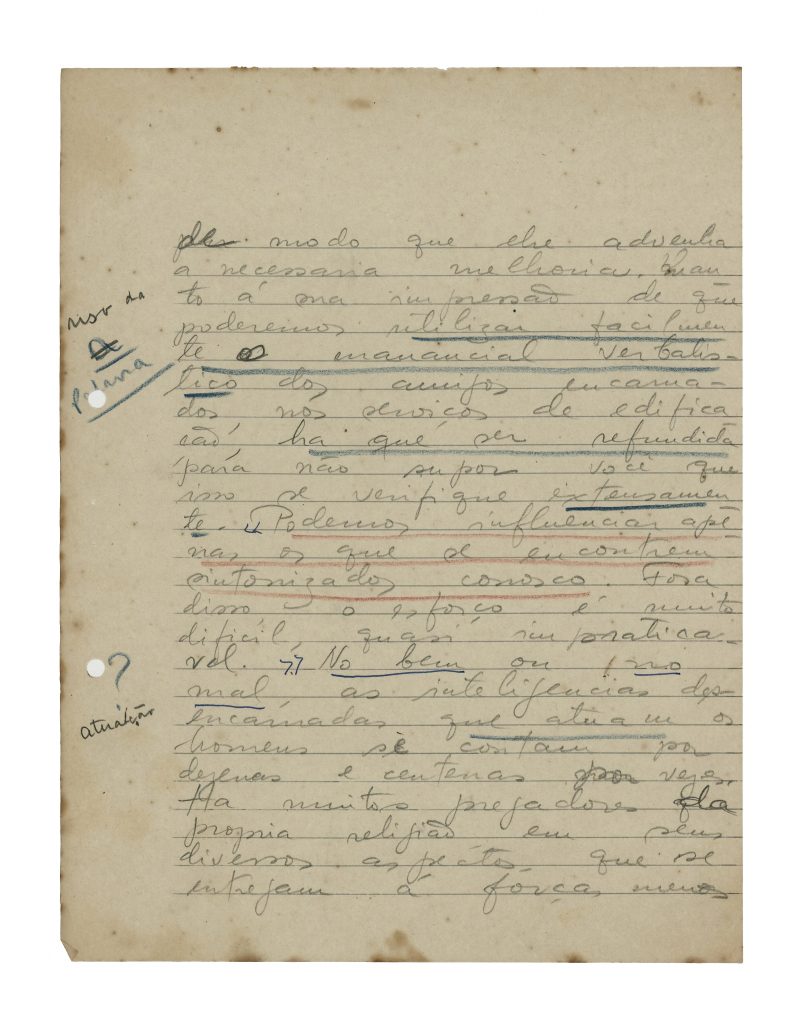 modo que ele advenha
a necessaria melhoria. Quan
to á sua impressão de que
poderemos utilizar facilmen
te o manancial verbalis-
tico dos amigos encarna-
dos nos serviços de edifica
ção, ha que ser refundida
para não supor você que
isso se verifique extensamen
te. Podemos influenciar ape
nas os que se encontrem
sintonizados conosco. Fora
disso o esforço é muito
dificil, quasi impratica-
vel. No bem ou no
mal, as inteligencias des-
encarnadas que atuam os
homens se contam por
dezenas e centenas por vezes.
Ha muitos pregadores da
propria religião em seus
diversos aspéctos que se
entregam á forças menos
uso da
a
palavra
?
atuação